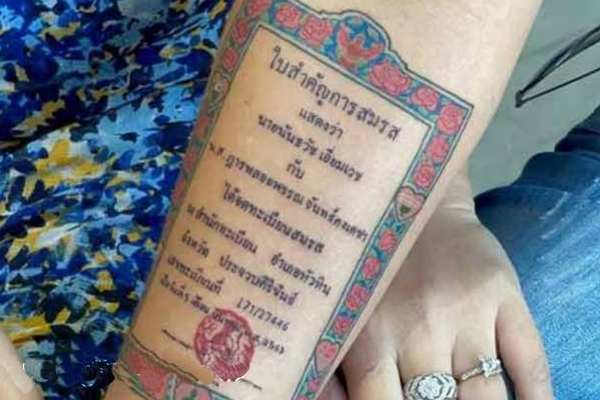 ใบสำคัญการสมรส
แสดงว่า
นายนันธวัช เอี่ยมเวช
กับ
น.ส. จันทร์คงเดชา
ได้จดทะเบียนสมรส
ณ สำนักทะเบียน อำเภอหัวหิน
จังหวัด ประจวบคีรีขันธ์
เลขทะเบียนที่ 171/27446